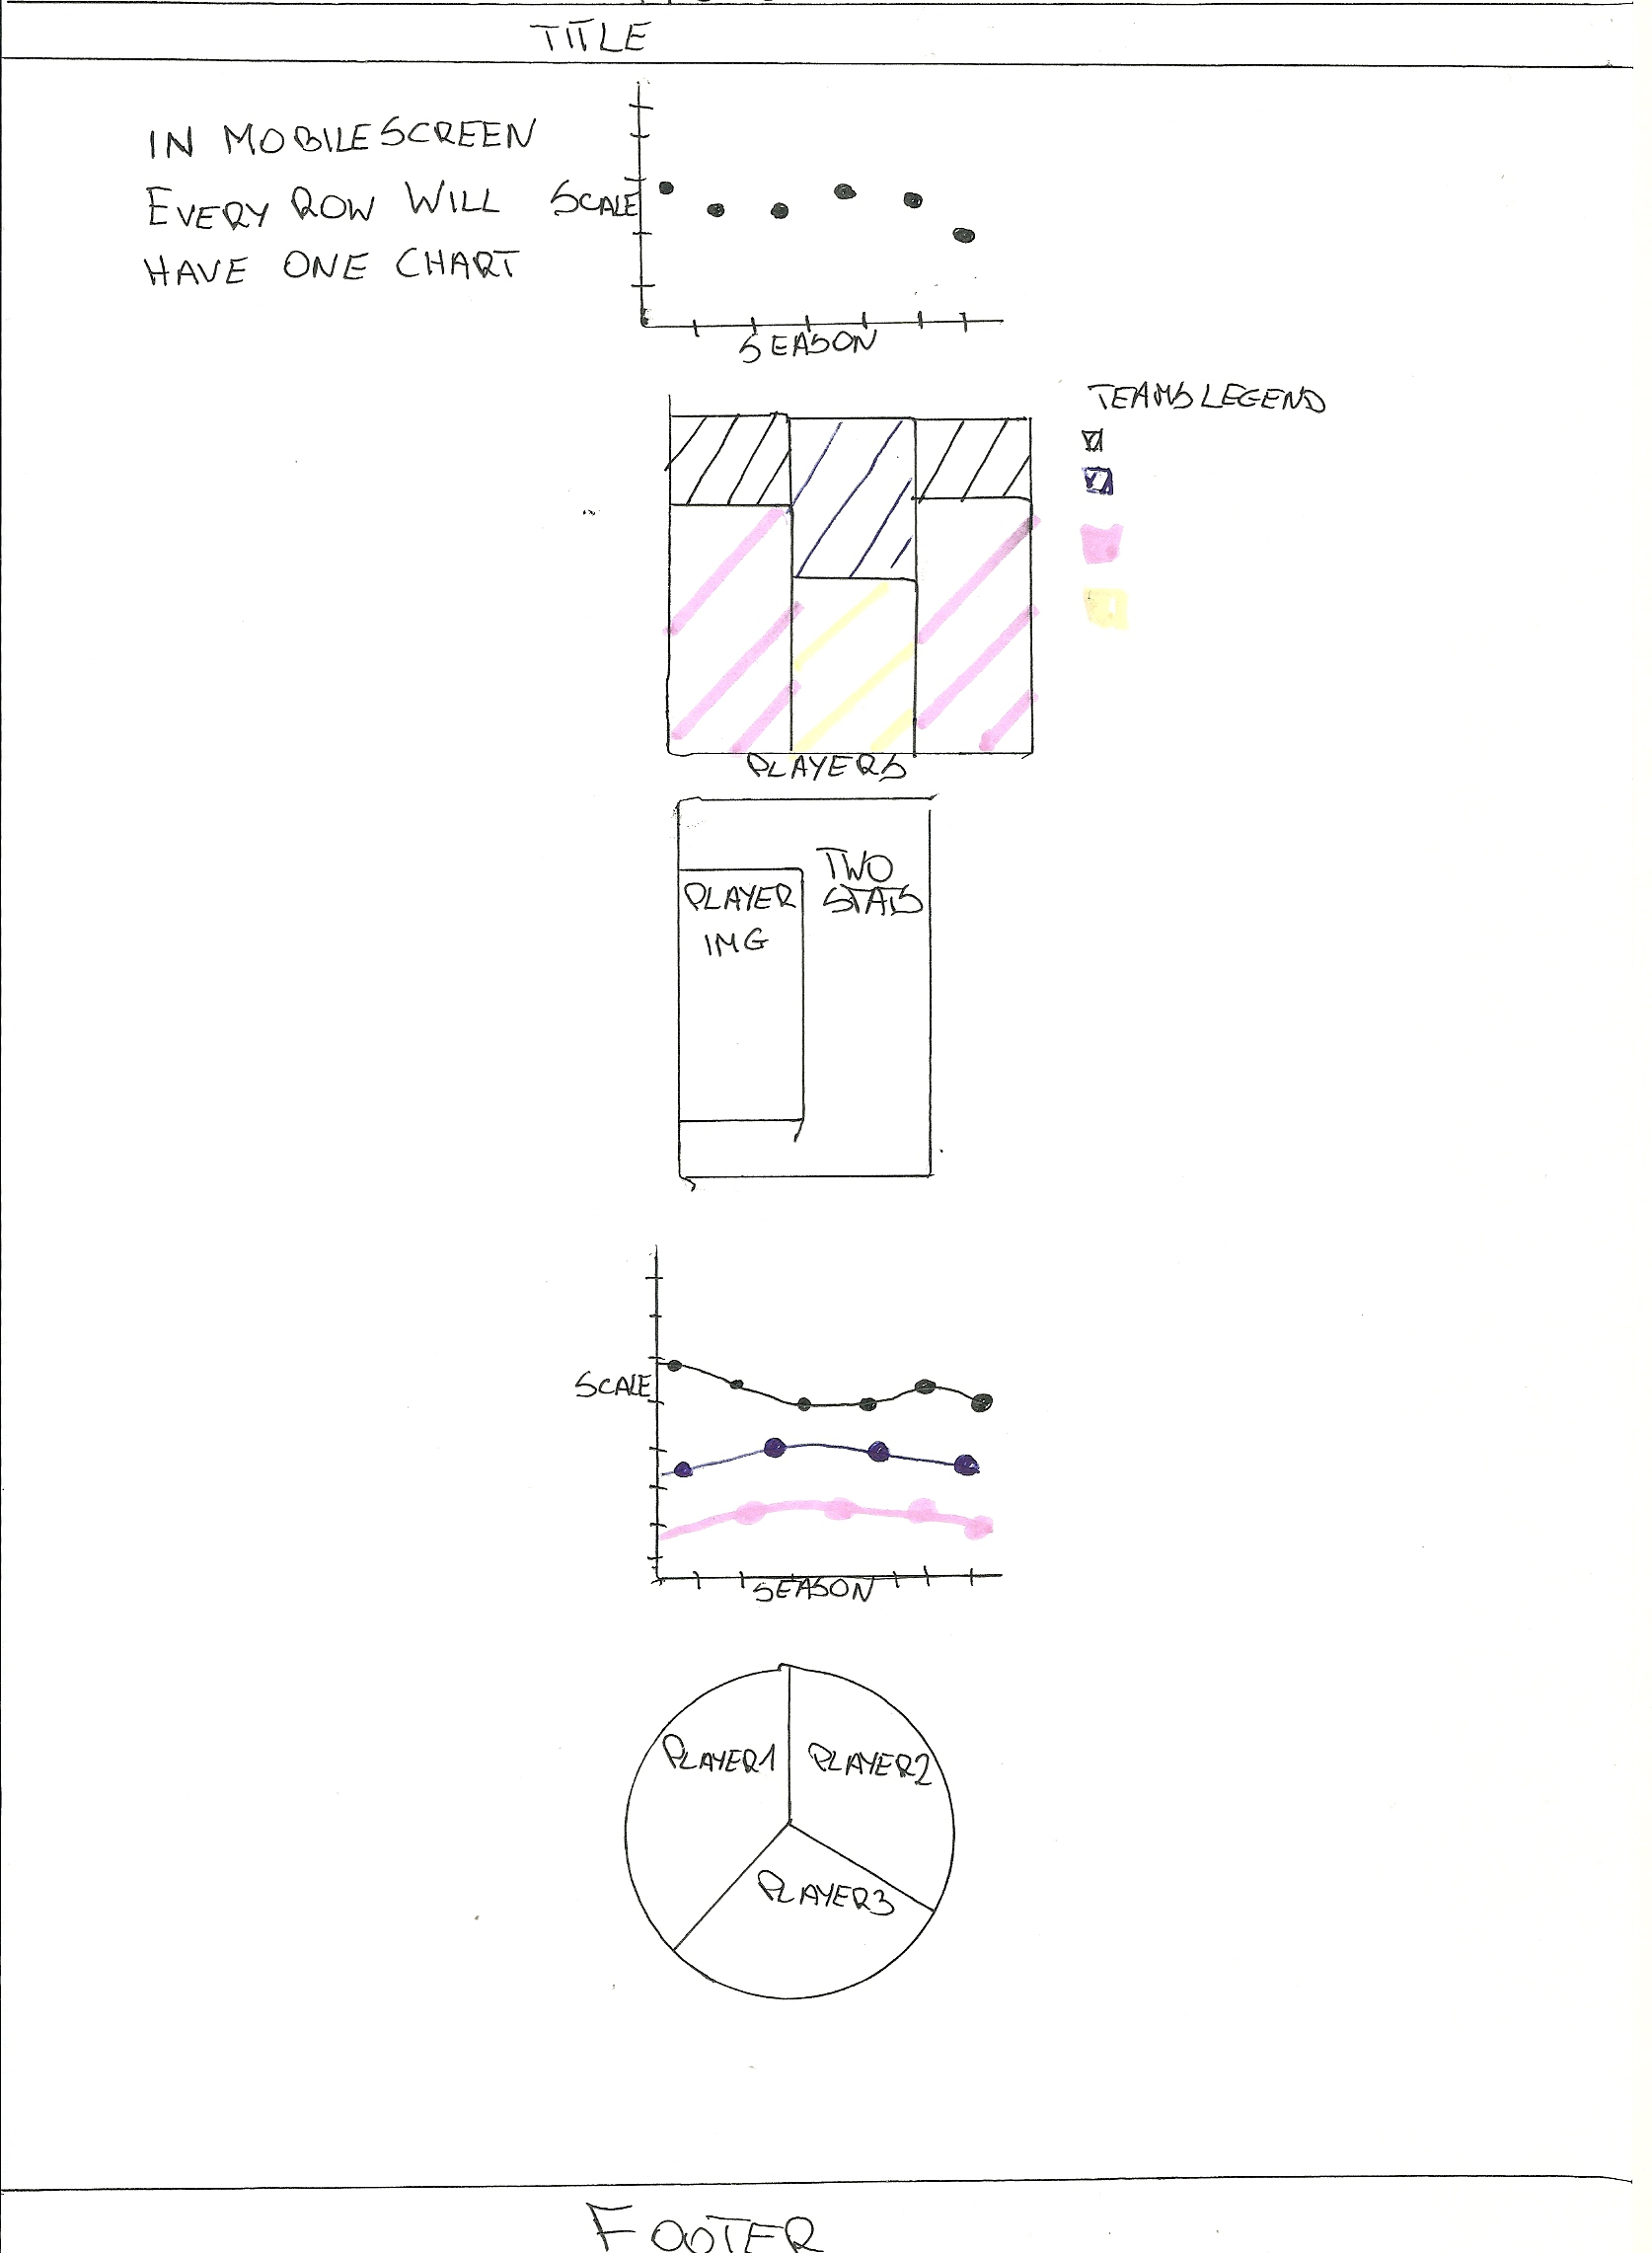 TITLE
IN MOBILE SCREEN
EVERY ROW WILL
HAVE ONE CHART
SCALE
SEASON
TEAMS LEGEND
PLAYERS
PLAYER
IMG
TWO
STATS
SCALE
SEASON
PLAYER1
PLAYER2
PLAYER3
FOOTER